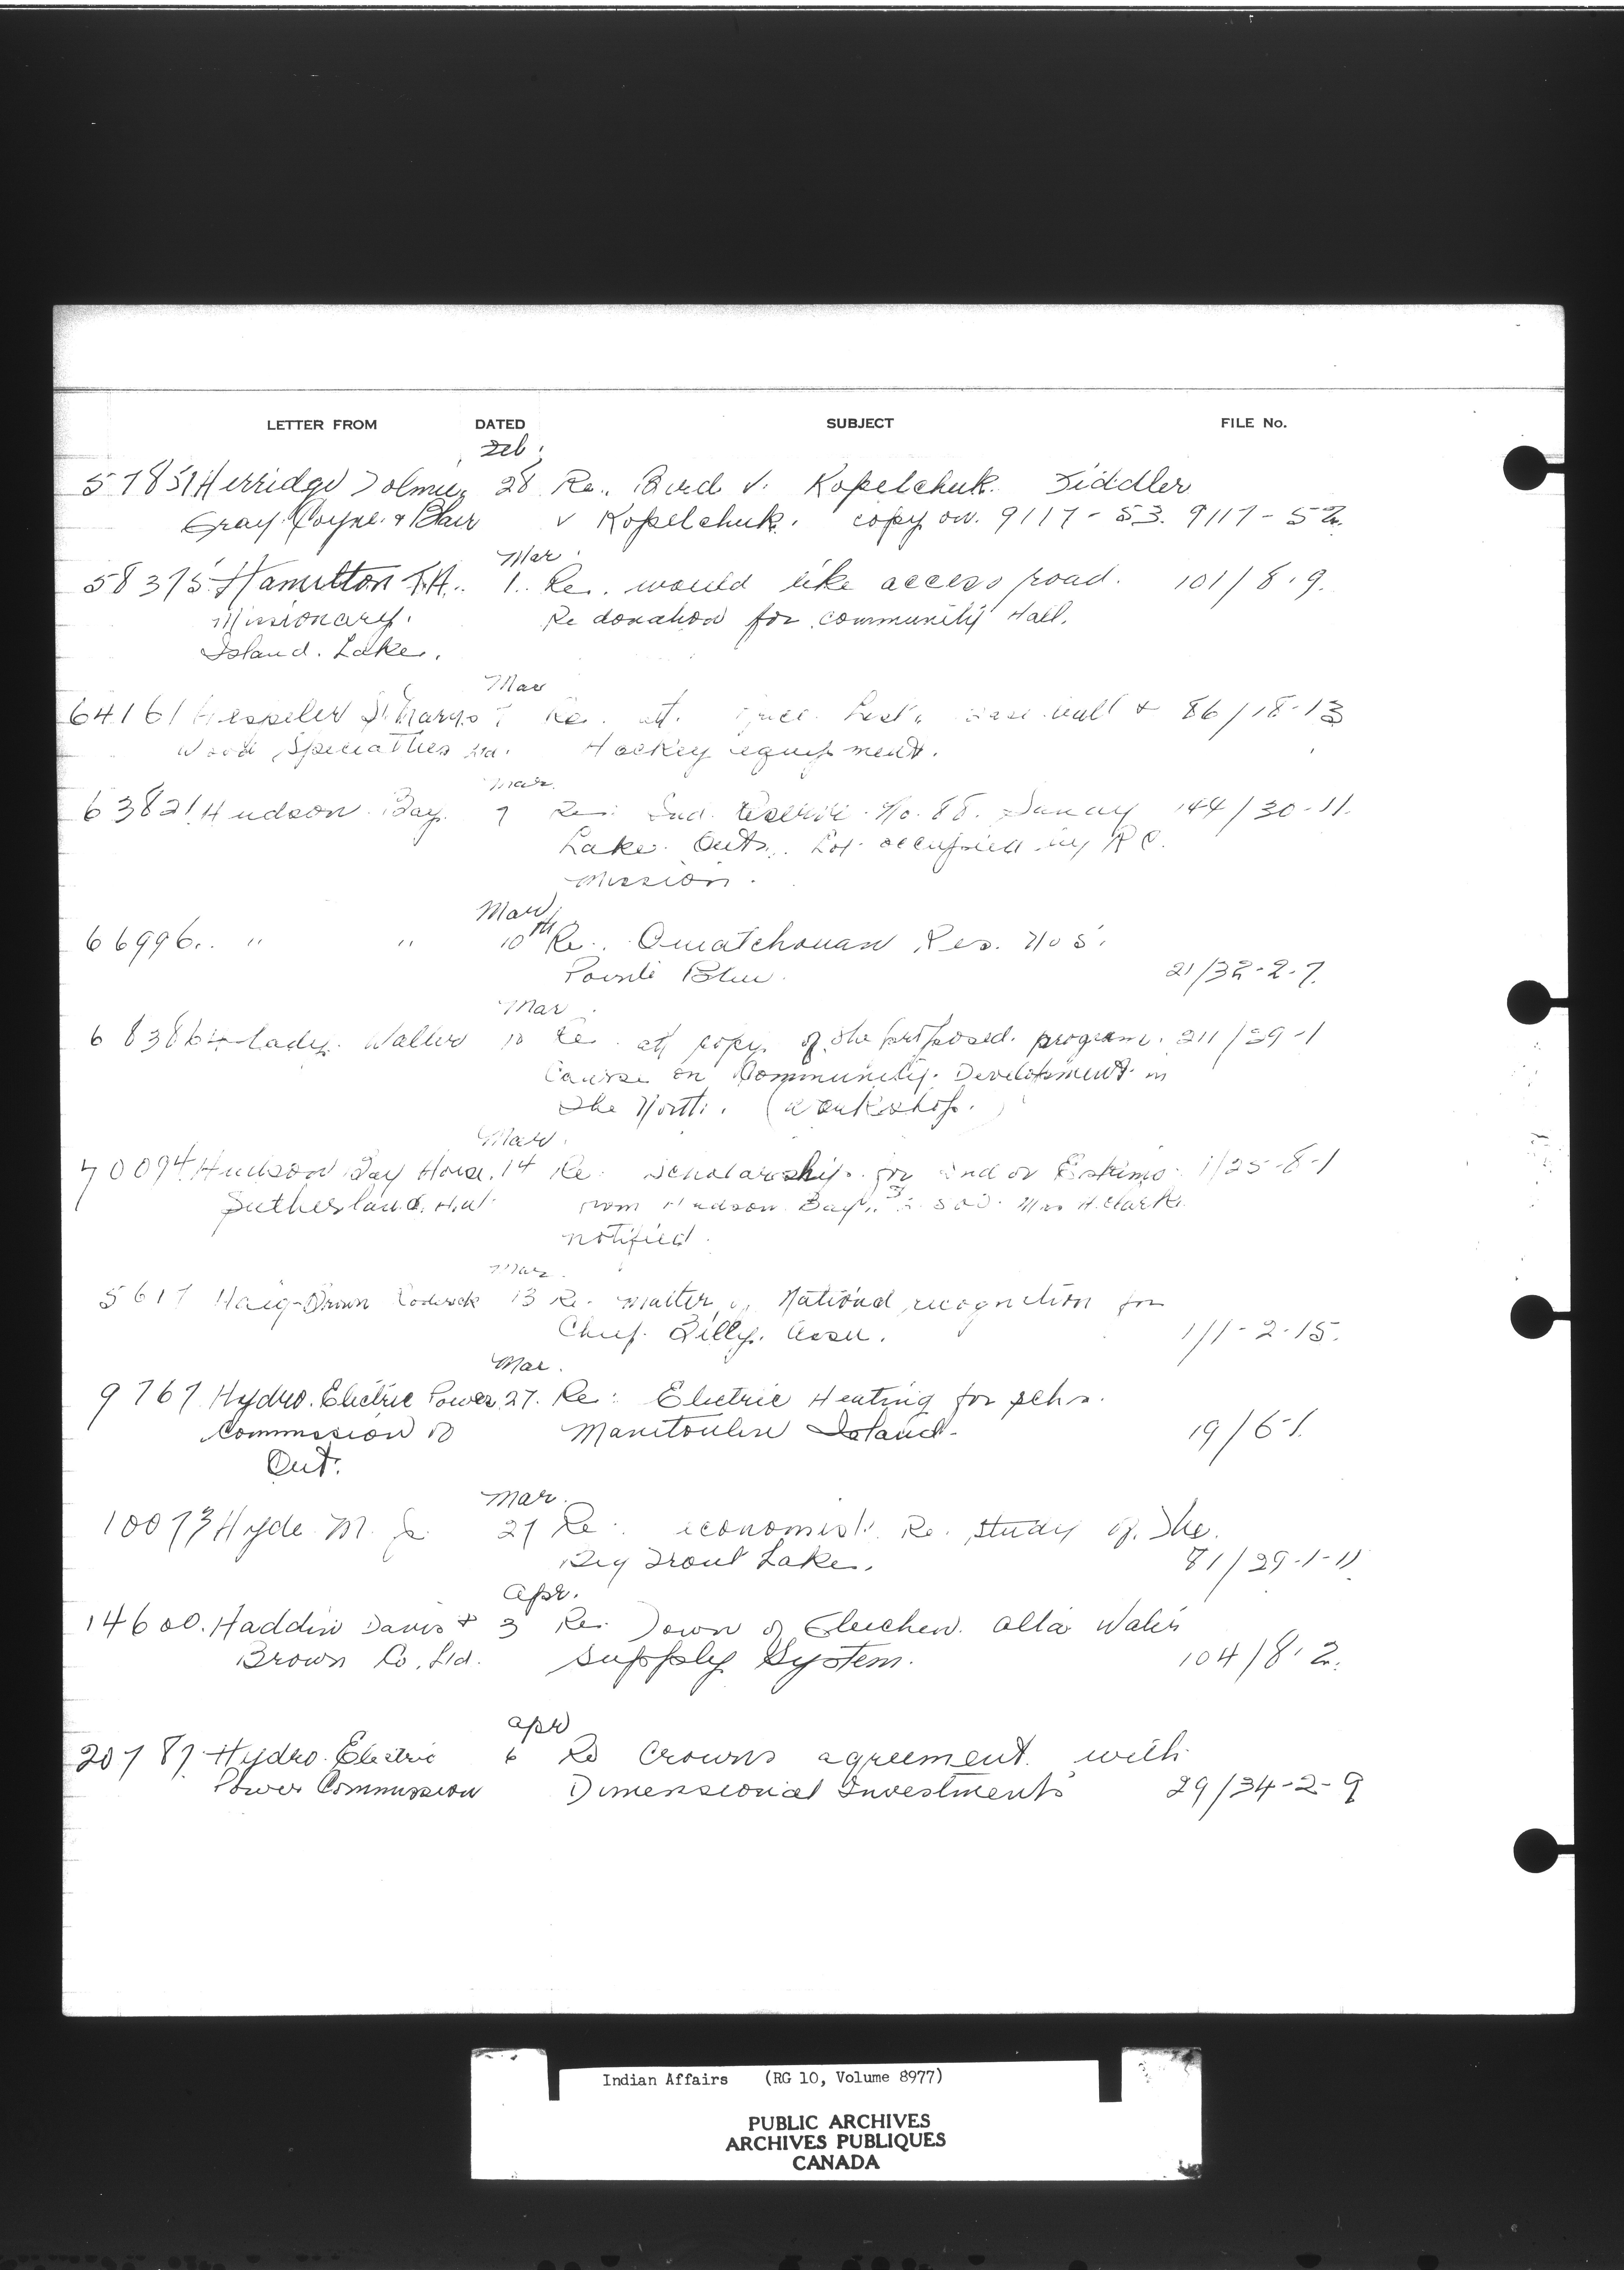 LETTER FROM DATED SUBJECT FILE No.
Feb.
57851 Herridge Tolmie, 28 Re. Bird v. Kopelchuk. Fiddler
Gray Coyne & Blair v Kopelchuk. copy on. 9117-53. 9117-52.
Mar.
58375 Hamilton T.A. 1. Re. would like access road. 101/8.9.
Missionary. Re donation for community Hall.
Island. Lake.
Mar
64161 Hespeler St Marys 7 Re. att. price list, baseball & 86/18-13
Wood Specialties Ltd. Hockey equipment.
Mar.
63821 Hudson Bay. 7 Re: Ind. Reserve No. 88. Lake. Ont. Lot occupied by R C.
144/30-11.
Mission.
Mar
66996. " " 10th Re. Ouiatchouan Res. No 5.
Pointe Bleu. 21/32-2-7.
Mar
68386 Hlady. Walter 10 Re. att copy of the proposed. program. 211/29-1
Course on Community. Development in
the North. (Workshop.)
Mar.
70094 Hudson Bay House. 14 Re. Scholarship. for Ind or Eskimo. 1/25-8-1
Sutherland, H.W. from Hudson Bay. 500. Mrs H. Clark.
notified.
Mar.
5617 Haig-Brown Roderick 13 Re. matter of National recognition for
Chief. Billy. Assu. 1/1-2-15.
Mar.
9767 Hydro. Electric Power 27. Re: Electric Heating for schs.
Commission of Manitoulin Island. 19/6-1.
Ont.
Mar.
10073 Hyde M. J. 27 Re. economist. Re. study of. the.
Big Trout Lake. 81/29-1-11
Apr.
14600. Haddin Davis & 3 Re. Town of Gleichen. Alta Water
Brown Co. Ltd. Supply System. 104/8.2.
Apr
20787. Hydro. Electric 6 Re Crowns agreement with
Power Commission Dimensional Investments 29/34-2-9
Indian Affairs (RG 10, Volume 8977)
PUBLIC ARCHIVES
ARCHIVES PUBLIQUES
CANADA